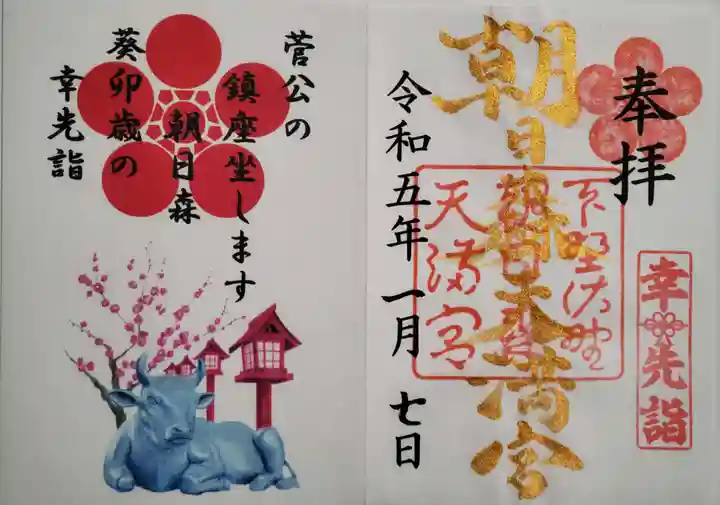 奉拝
朝日森天満宮
下野佐野
朝日森
天満宮
幸先詣
令和五年一月七日
菅公の
鎮座坐します
朝日森
葵卯歳の
幸先詣